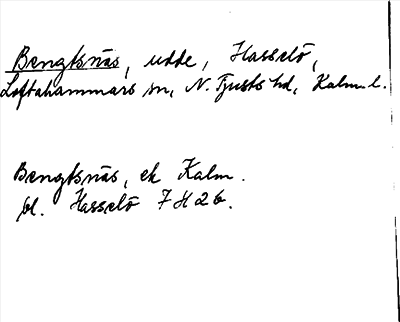 Bengtsnäs, udde, Hasselö,
Loftahammars sn, N. Tjusts hd, Kalm. l.
Bengtsnäs, ek Kalm.
bl. Hasselö 7H2b.